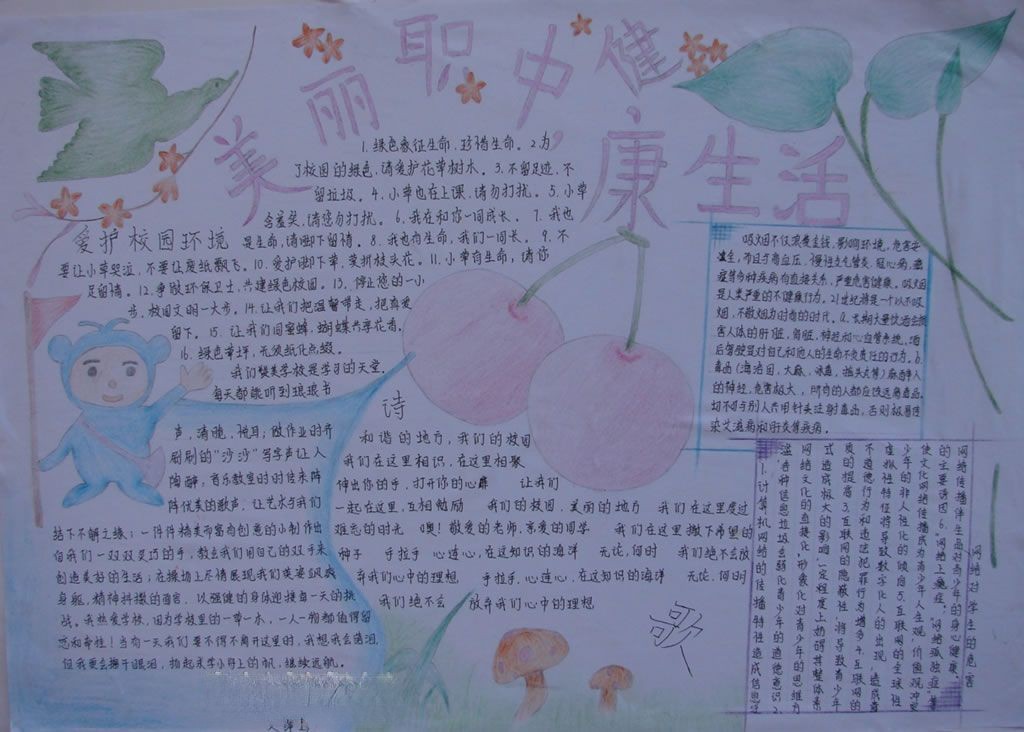 美丽职中,健康生活
爱护校园环境
1.绿色象征生命,珍惜生命。2.为
了校园的绿色,请爱护花草树木。3.不留足迹,不
留垃圾。4.小草也在上课,请勿打扰。5.小草
含羞笑,请您勿打扰。6.我在和你一同成长。7.我也
是生命,请脚下留情。8.我也有生命,我们一同长。9.不
要让小草哭泣,不要让废纸飘飞。10.爱护脚下草,莫折枝头花。11.小草有生命,请你
足留情。12.争做环保卫士,共建绿色校园。13.停止您的一小
步,校园文明一大步。14.让我们把温馨带走,把真爱
留下。15.让我们同蜜蜂,蝴蝶共享花香。
16.绿色草坪,无须纸化点缀。
我们赞美学校是学习的天堂,
每天都能听到琅琅书
声,清脆,悦耳;做作业的齐
刷刷的"沙沙"写字声让人
陶醉,音乐教室时时传来阵
阵优美的歌声,让艺术与我们
结下不解之缘;一件件精美而富有创意的小制作出
自我们一双双灵巧的手,教会我们用自己的双手来
创造美好的生活;在操场上尽情展现我们英姿飒爽
身躯,精神抖擞的面容,以强健的身体迎接每一天的挑
战。我热爱学校,因为学校里的一草一木,一人一物都值得留
恋和牵挂!当有一天我们要不得不离开这里的,我想我会落泪,
但我更会擦干眼泪,扬起求学小舟上的帆,继续远航。
诗
和谐的地方,我们的校园
我们在这里相识,在这里相聚
伸出你的手,打开你的心扉 让我们
一起在这里,互相勉励 我们的校园,美丽的地方 我们在这里度过
难忘的时光 噢!敬爱的老师,亲爱的同学 我们在这里撒下希望的
种子 手拉手 心连心,在这知识的海洋 无论,何时 我们绝不会放
弃我们心中的理想 手拉手,心连心,在这知识的海洋 无论,何时
我们绝不会 放弃我们心中的理想
歌
吸烟不仅浪费金钱,影响环境,危害安
而且与高血压,慢性支气管炎,冠心病,癌
症等多种疾病有直接关系,严重危害健康。吸烟
是人类严重的不健康行为。21世纪将是一个以不吸
烟,不敬烟为时尚的时代。a.长期大量饮酒会损
害人体的肝脏,肾脏,神经和心血管系统。酒
后驾驶是对自己和他人的生命不负责任的行为。b.
毒品(海洛因,大麻,冰毒,摇头丸等)麻醉人
的神经,危害极大,所有的人都应该远离毒品。
切不可与别人共用针头注射毒品,否则极易传
染艾滋病和肝炎等疾病。
网络对学生的危害
网络传播伴生是对青少年的身心健康。
的主要诱因6."网络上瘾症","网络孤独症"等
使文化网络传播成为青少年人生观,价值观冲突
少年的非人性化的倾向5.互联网的全球性
虚拟性特征将导致数字化人的出现,造成青
不道德行为和违法犯罪行为增多4.互联网的
质的提高3.互联网的隐蔽性,将导致青少年
式造成极大的影响,一定程度上妨碍其整体素
网络文化的直接化,形象化对青少年的思维方
滥,各种信息垃圾会弱化青少年的道德意识2.
1.计算机网络的传播特性造成信息泛